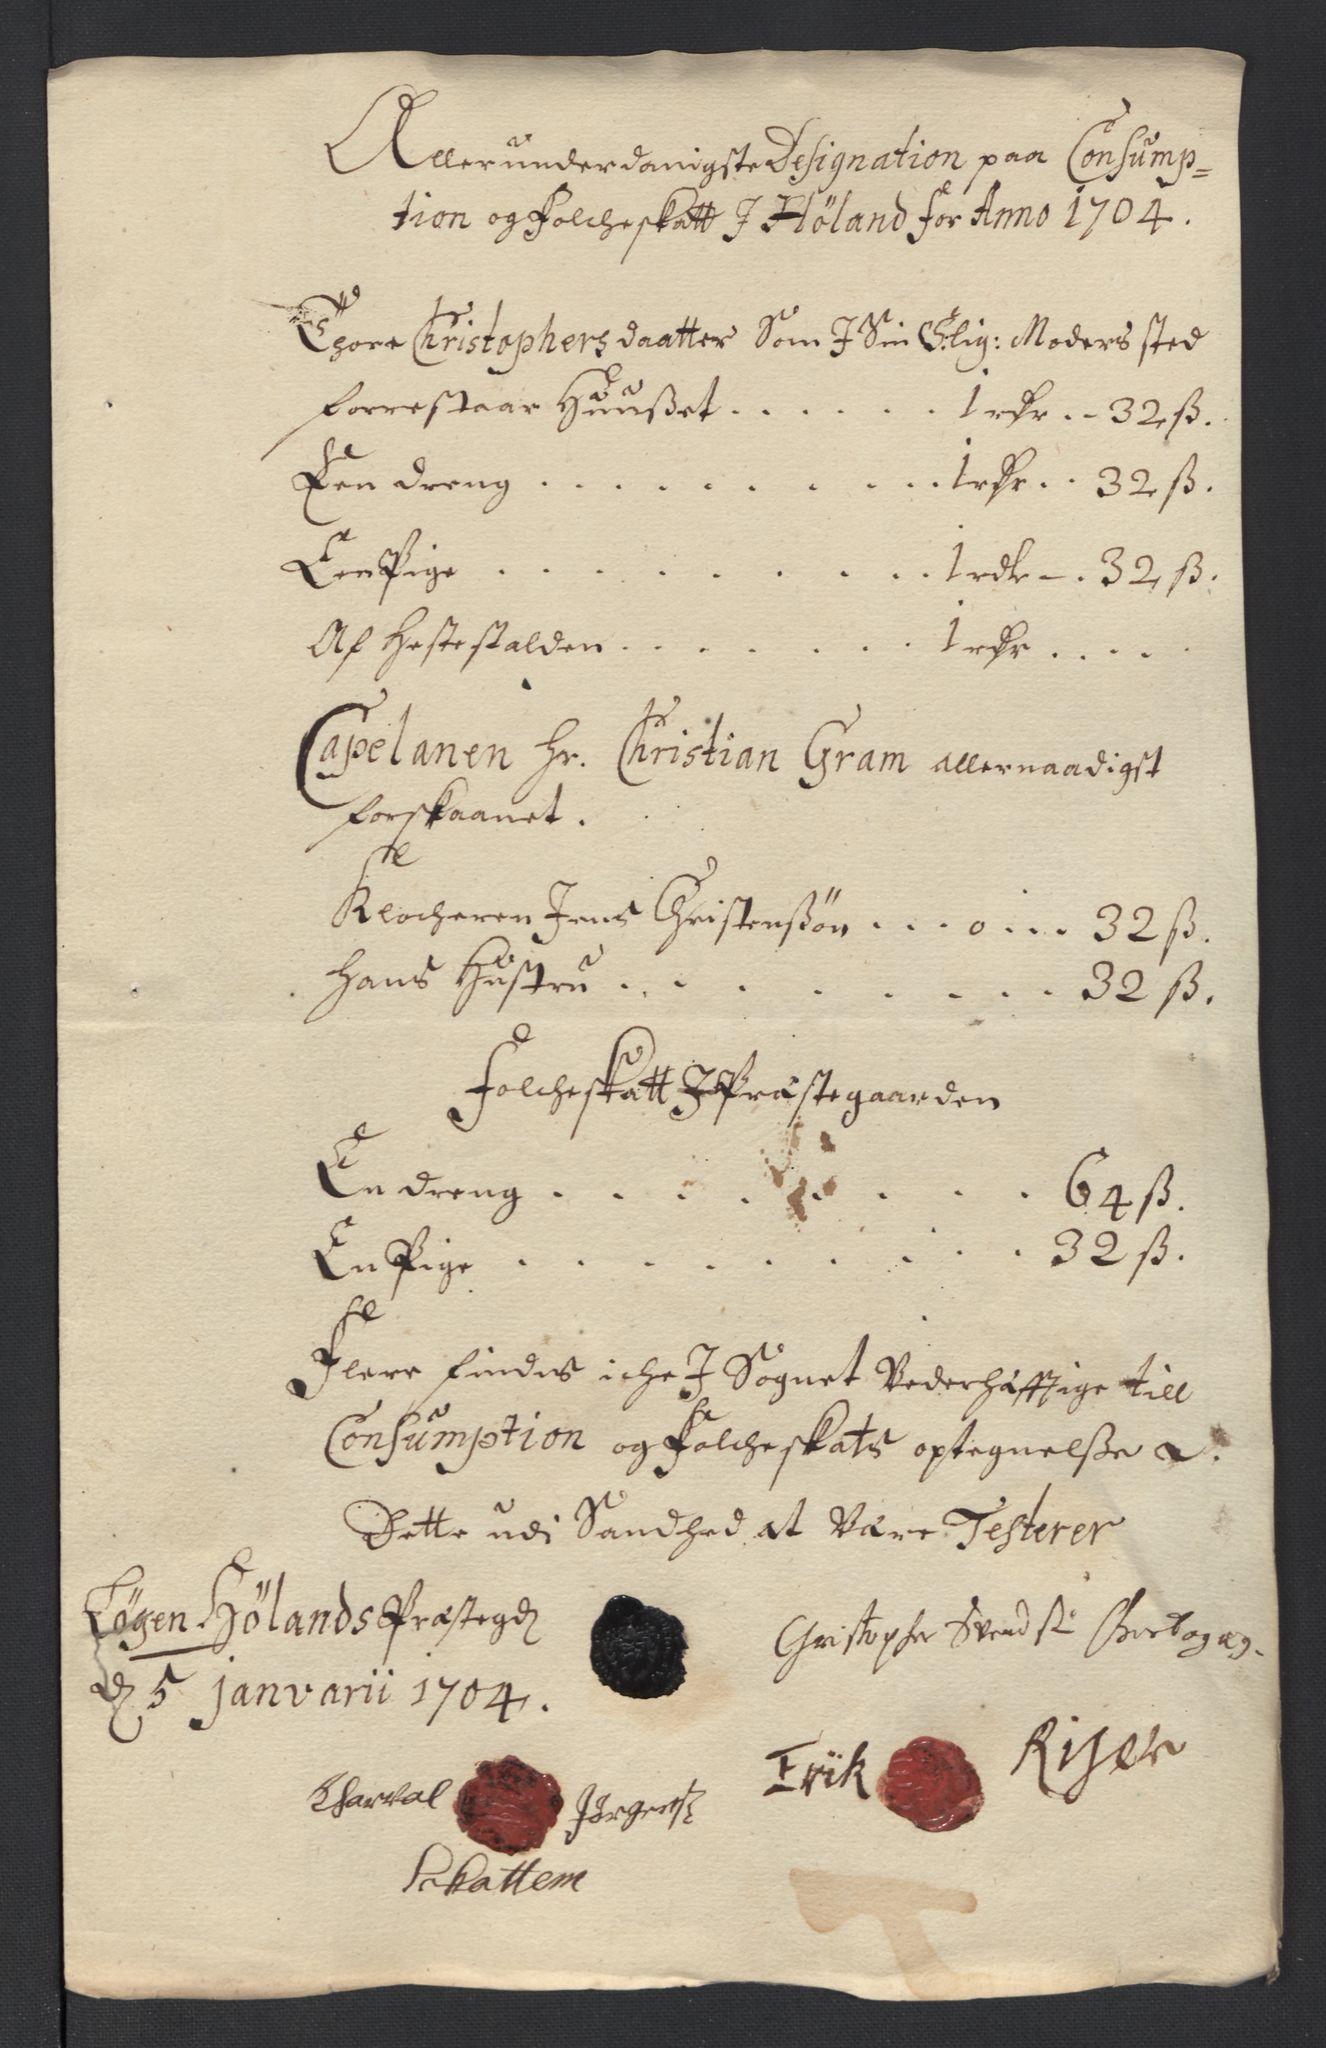 Allerunderdanigste Designation paa Consump=
tion og Folcheskatt J Höland for Anno 1704.
Thore Christophersdaatter Som J Sin Sl: Moders sted
forrestaar Huußet . . . . . . 1 rdr .. 32 ß.
Een dreng . . . . . . . . . 1 rdr .. 32 ß.
Een Pige . . . . . . . . . 1 rdr - . 32 ß.
Af Hestestalden . . . . . . . 1 rdr . . . .
Capelanen hr. Christian Gram allernaadigst
forskaanet.
Klocheren Jens Christenßön . . . 0 . . . 32 ß.
hans Hustru . . . . . . . . 32 ß.
Folcheskatt J Præstegaarden
En dreng . . . . . . . . . 64 ß.
En Pige . . . . . . . . . 32 ß.
Flere findes iche J Sognet Vederhäfftige till
Consumption og Folcheskats optegnelße
Dette udi Sandhed at være Testerer
Hölands Præstegd
d 5 janvarii 1704.
Christopher Svends
Erik Riser
Jörgens
Skattem